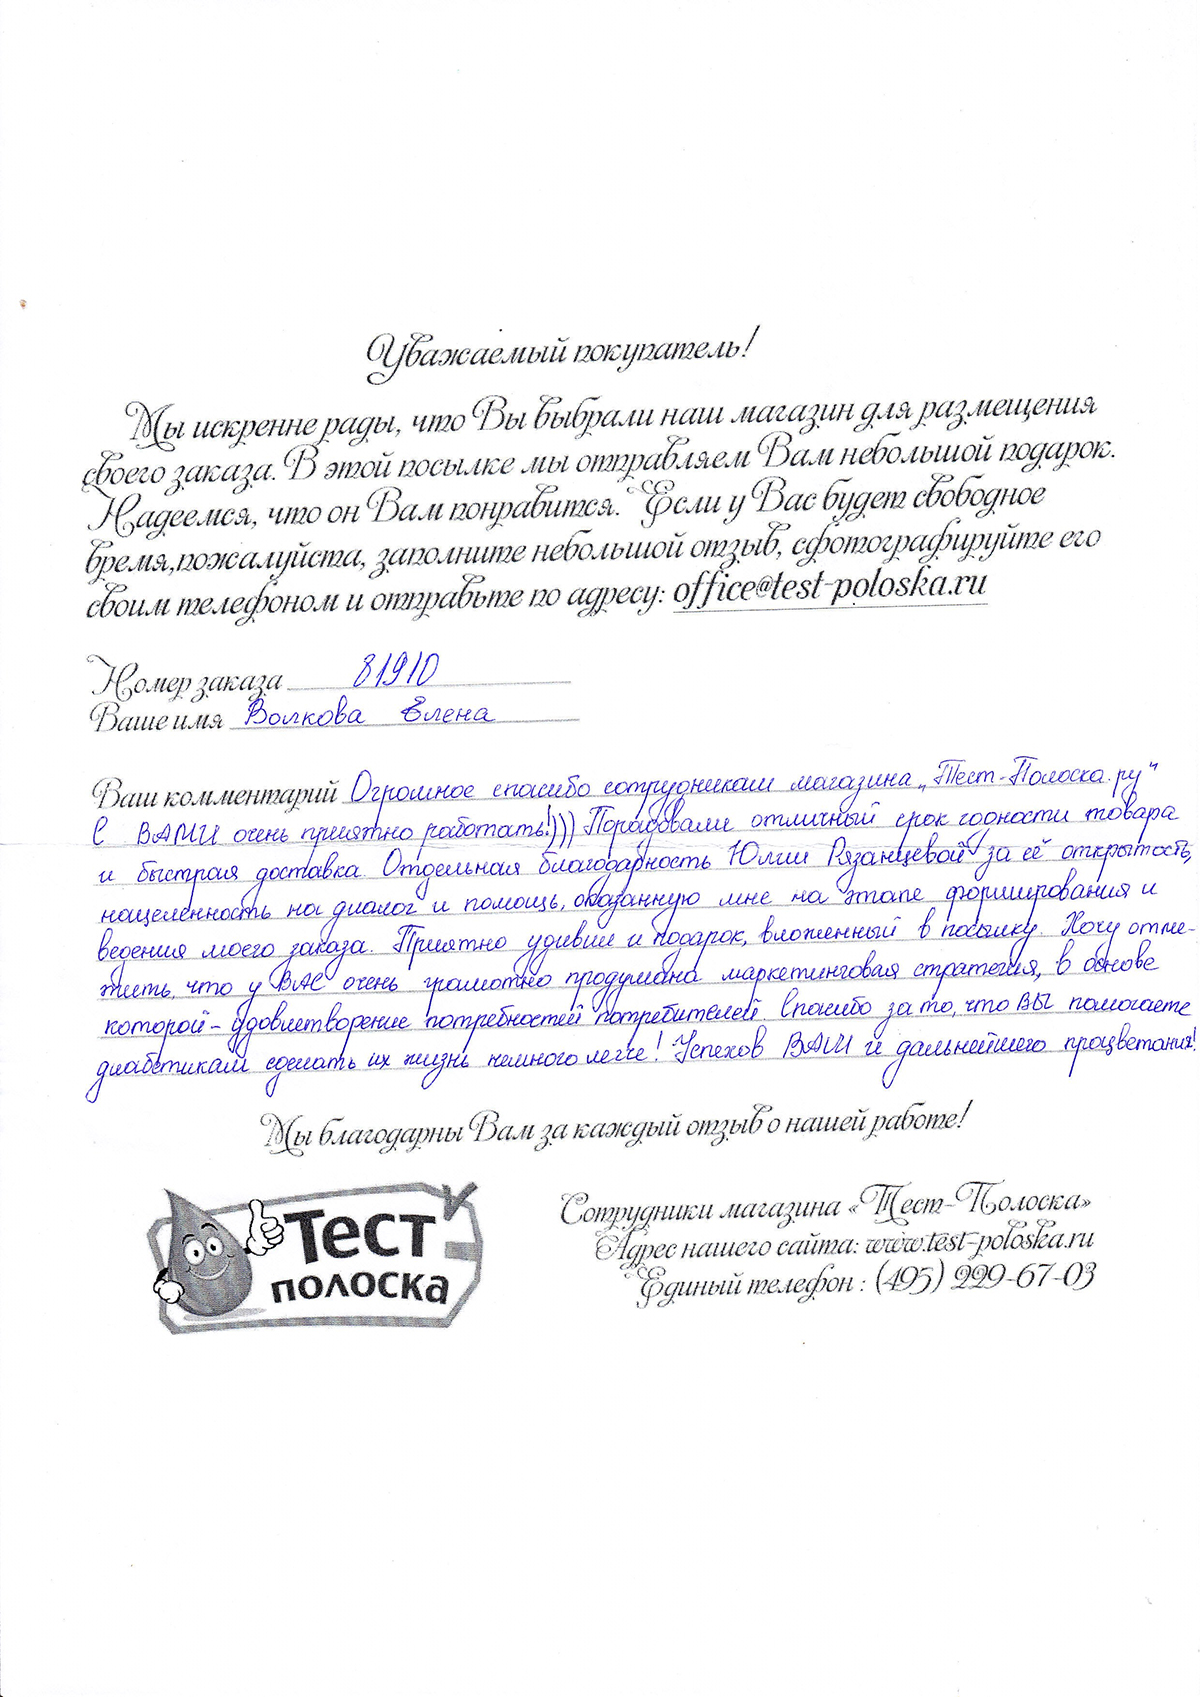 Уважаемый покупатель!
Мы искренне рады, что Вы выбрали наш магазин для размещения
своего заказа. В этой посылке мы отправляем Вам небольшой подарок.
Надеемся, что он Вам понравится. Если у Вас будет свободное
время,пожалуйста, заполните небольшой отзыв, сфотографируйте его
своим телефоном и отправьте по адресу: office@test-poloska.ru
Номер заказа 81910
Ваше имя Волкова Елена
Ваш комментарий Огромное спасибо сотрудникам магазина „Тест-Полоска.ру“
С ВАМИ очень приятно работать!))) Порадовали отличный срок годности товара
и быстрая доставка. Отдельная благодарность Юлии Рязанцевой за её открытость,
нацеленность на диалог и помощь, оказанную мне на этапе формирования и
ведения моего заказа. Приятно удивил и подарок, вложенный в посылку. Хочу отме-
тить, что у ВАС очень грамотно продумана маркетинговая стратегия, в основе
которой – удовлетворение потребностей потребителей. Спасибо за то, что ВЫ помогаете
диабетикам сделать их жизнь немного легче! Успехов ВАМ и дальнейшего процветания!
Мы благодарны Вам за каждый отзыв о нашей работе!
Тест
полоска
Сотрудники магазина «Тест-Полоска»
Адрес нашего сайта: www.test-poloska.ru
Единый телефон : (495) 229-67-03